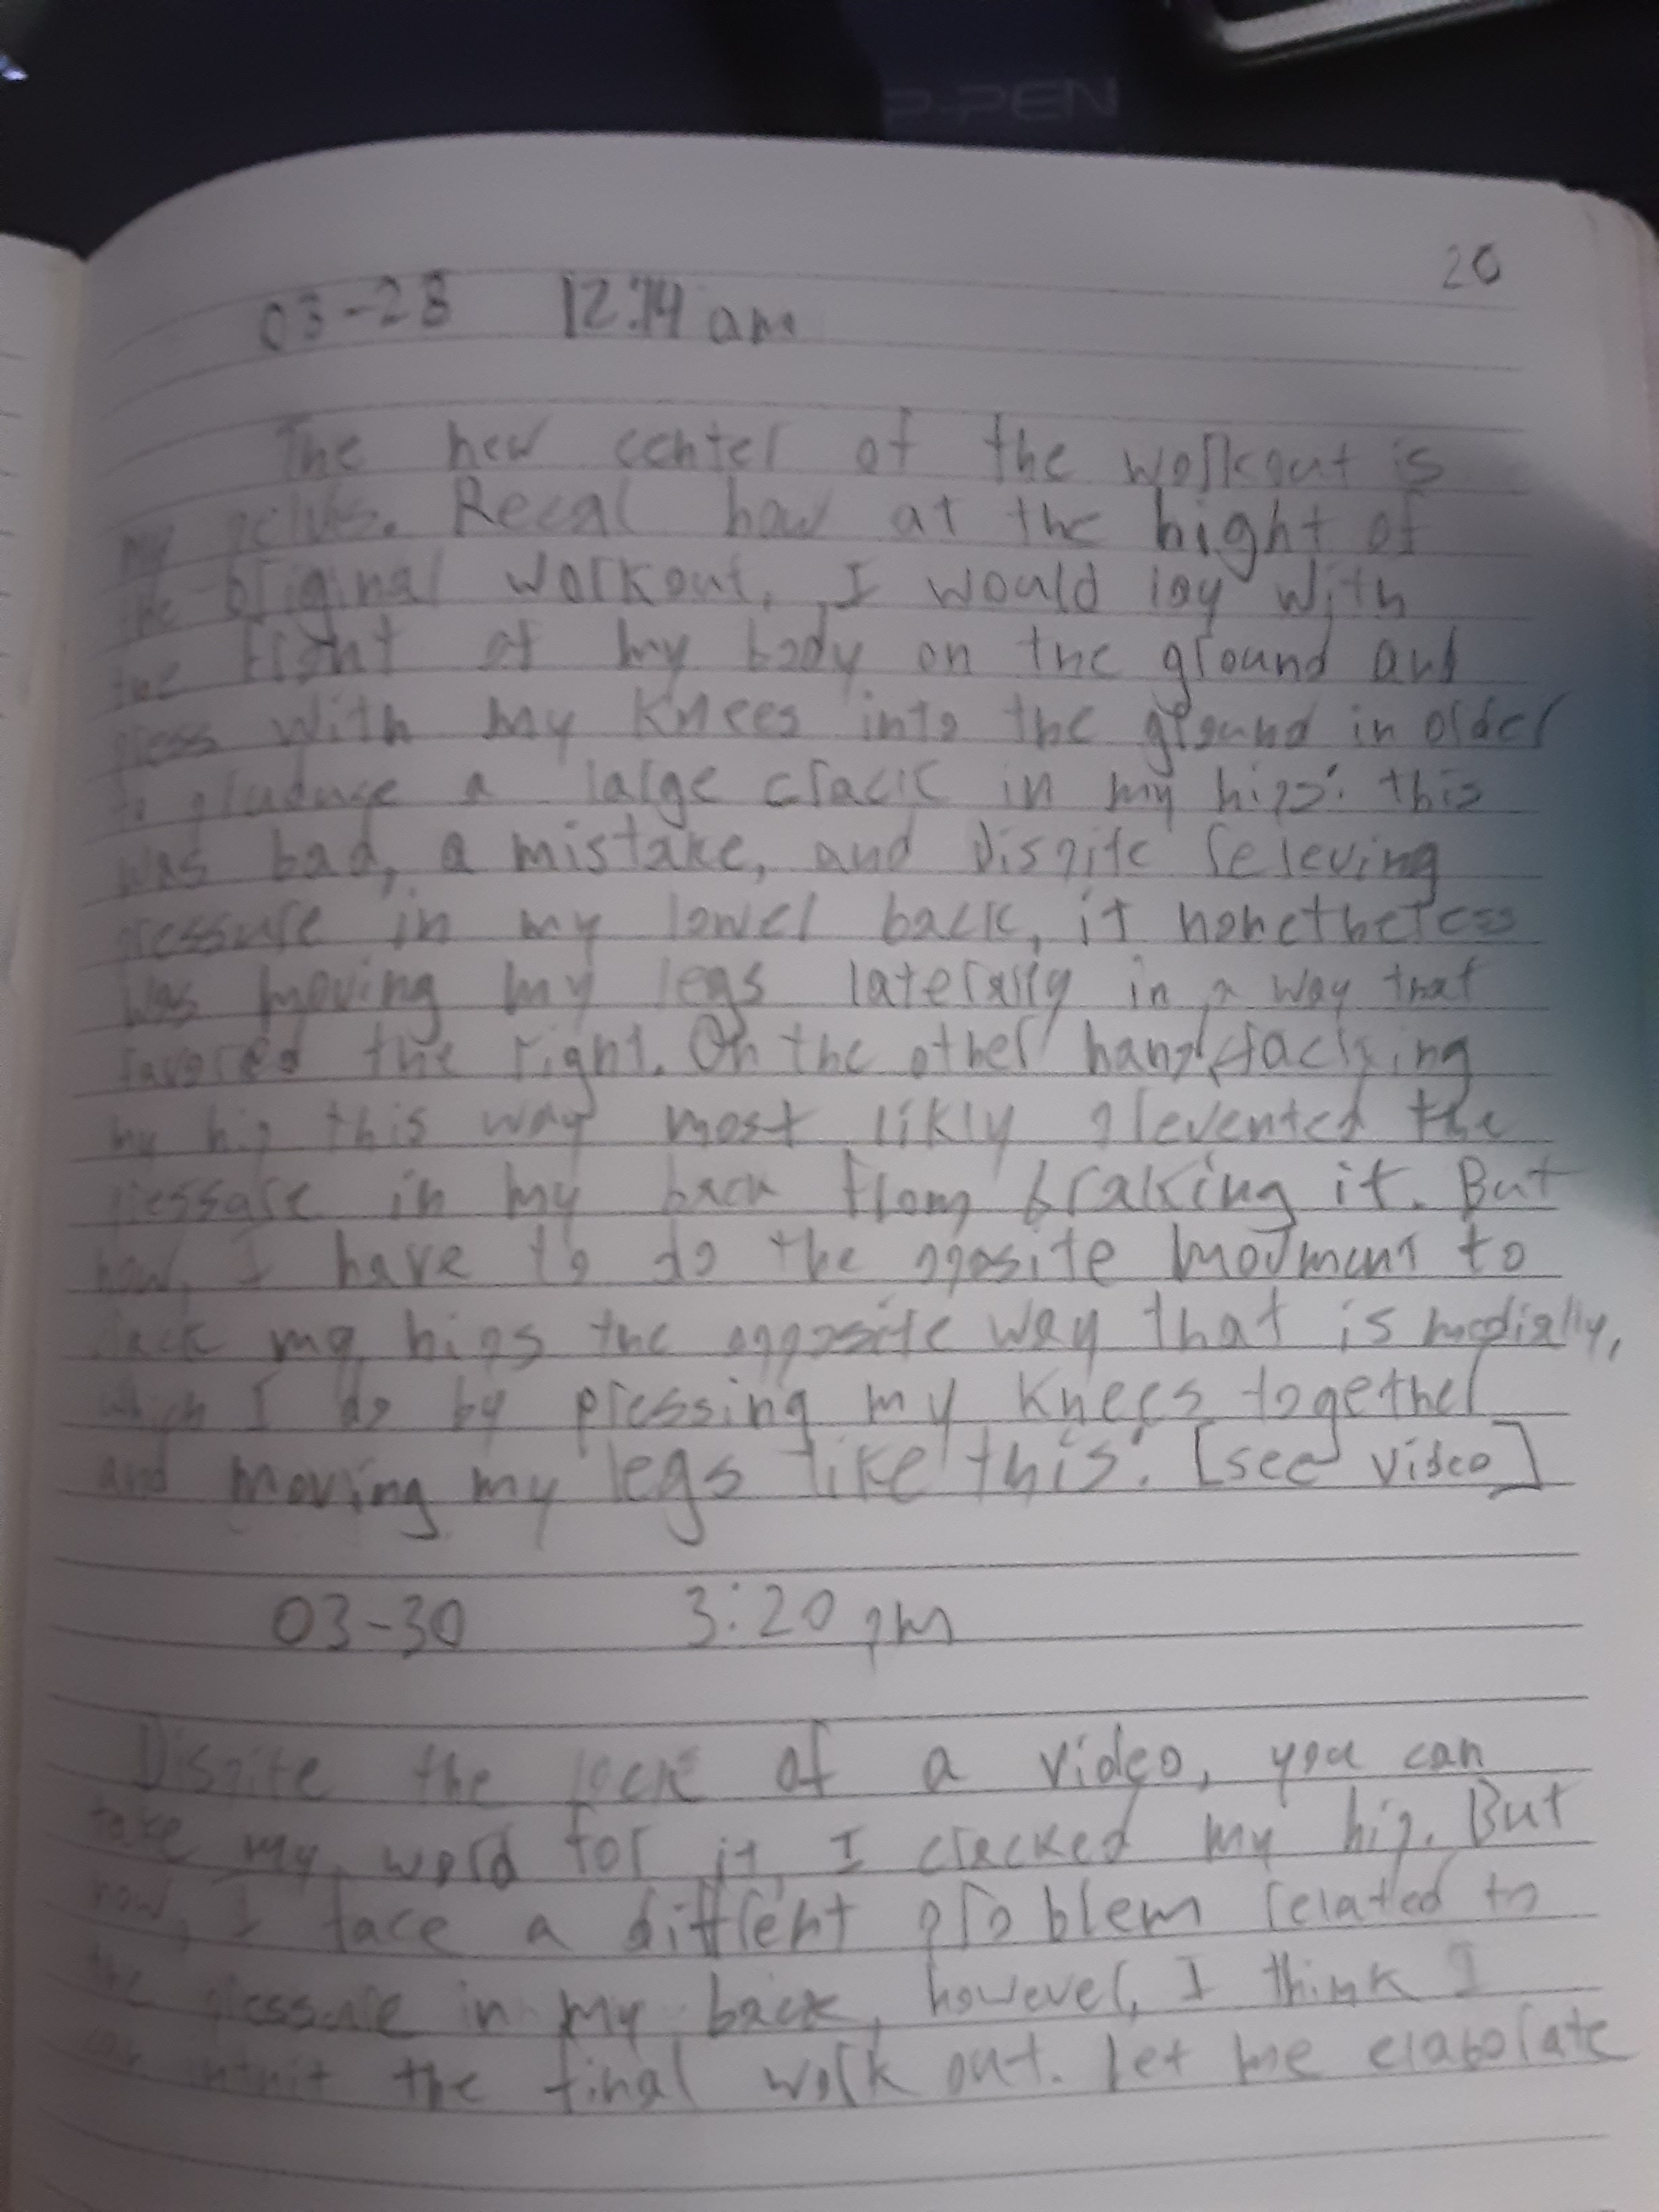 P-PEN
20
03-28 12:14 am
The new center of the workout is
my pelvis. Recal how at the hight of
the original workout, I would lay with
the front of my body on the ground and
press with my knees into the ground in order
to produce a large crack in my hips: this
was bad, a mistake, and dispite releving
pressure in my lower back, it nonetheless
was moving my legs laterally in a way that
favored the right. On the other hand, cracking
my hip this way most likly prevented the
pressure in my back from braking it. But
now, I have to do the oposite movment to
crack my hips the opposite way that is medially,
which I do by pressing my knees together
and moving my legs like this: [see video]
03-30 3:20 pm
Dispite the lack of a video, you can
take my word for it, I cracked my hip. But
now, I face a different problem related to
the pressure in my back, however, I think I
can intuit the final work out. Let me elaborate